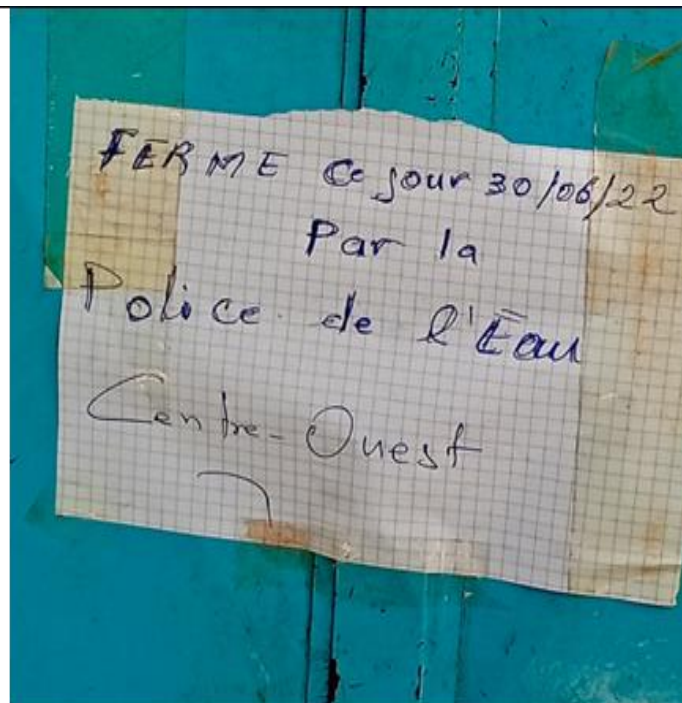 FERME Ce jour 30/06/22
Par la
Police de l'Eau
Centre-Ouest